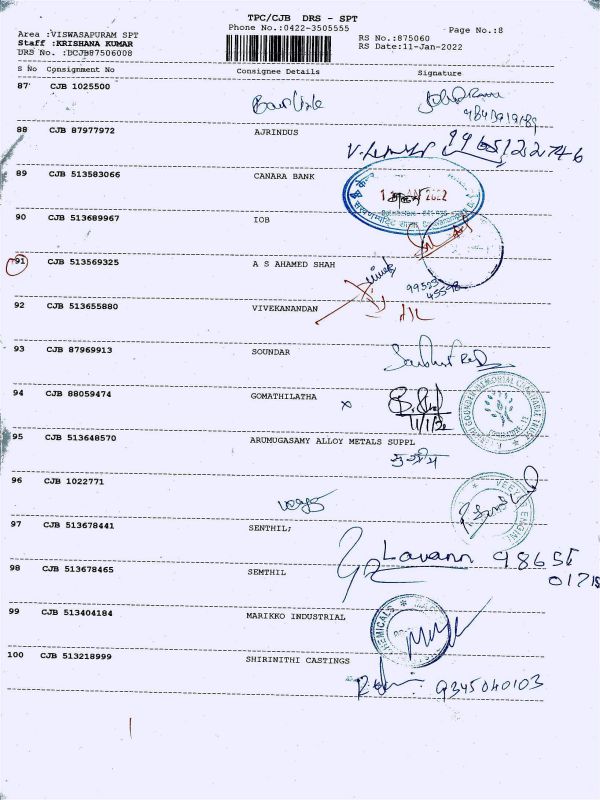 TPC/CJB DRS - SPT
Phone No.:0422-3505555
Page No.:8
Area :VISWASAPURAM SPT
RS No.:875060
Staff :KRISHANA KUMAR
RS Date:11-Jan-2022
DRS No. :DCJB87506008
S No Consignment No Consignee Details Signature
87 CJB 1025500
88 CJB 87977972 AJRINDUS
89 CJB 513583066 CANARA BANK
90 CJB 513689967 IOB
91 CJB 513569325 A S AHAMED SHAH
99523
45598
92 CJB 513655880 VIVEKANANDAN
93 CJB 87969913 SOUNDAR
94 CJB 88059474 GOMATHILATHA
11/1/22
95 CJB 513648570 ARUMUGASAMY ALLOY METALS SUPPL
96 CJB 1022771
97 CJB 513678441 SENTHIL;
Lavann 98651
01715
98 CJB 513678465 SEMTHIL
99 CJB 513404184 MARIKKO INDUSTRIAL
100 CJB 513218999 SHIRINITHI CASTINGS
9345040103